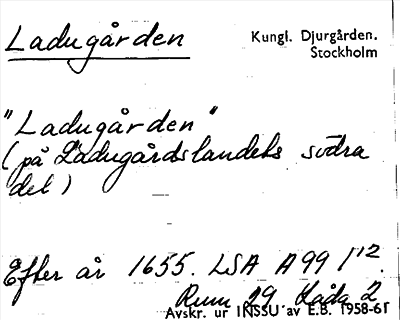 Ladugården
Kungl. Djurgården.
Stockholm
"Ladugården"
(på Ladugårdslandets södra
del)
Efter år 1655. LSA A99 1¹².
Rum 29. Låda 2
Avskr. ur INSSU av E.B. 1958-61